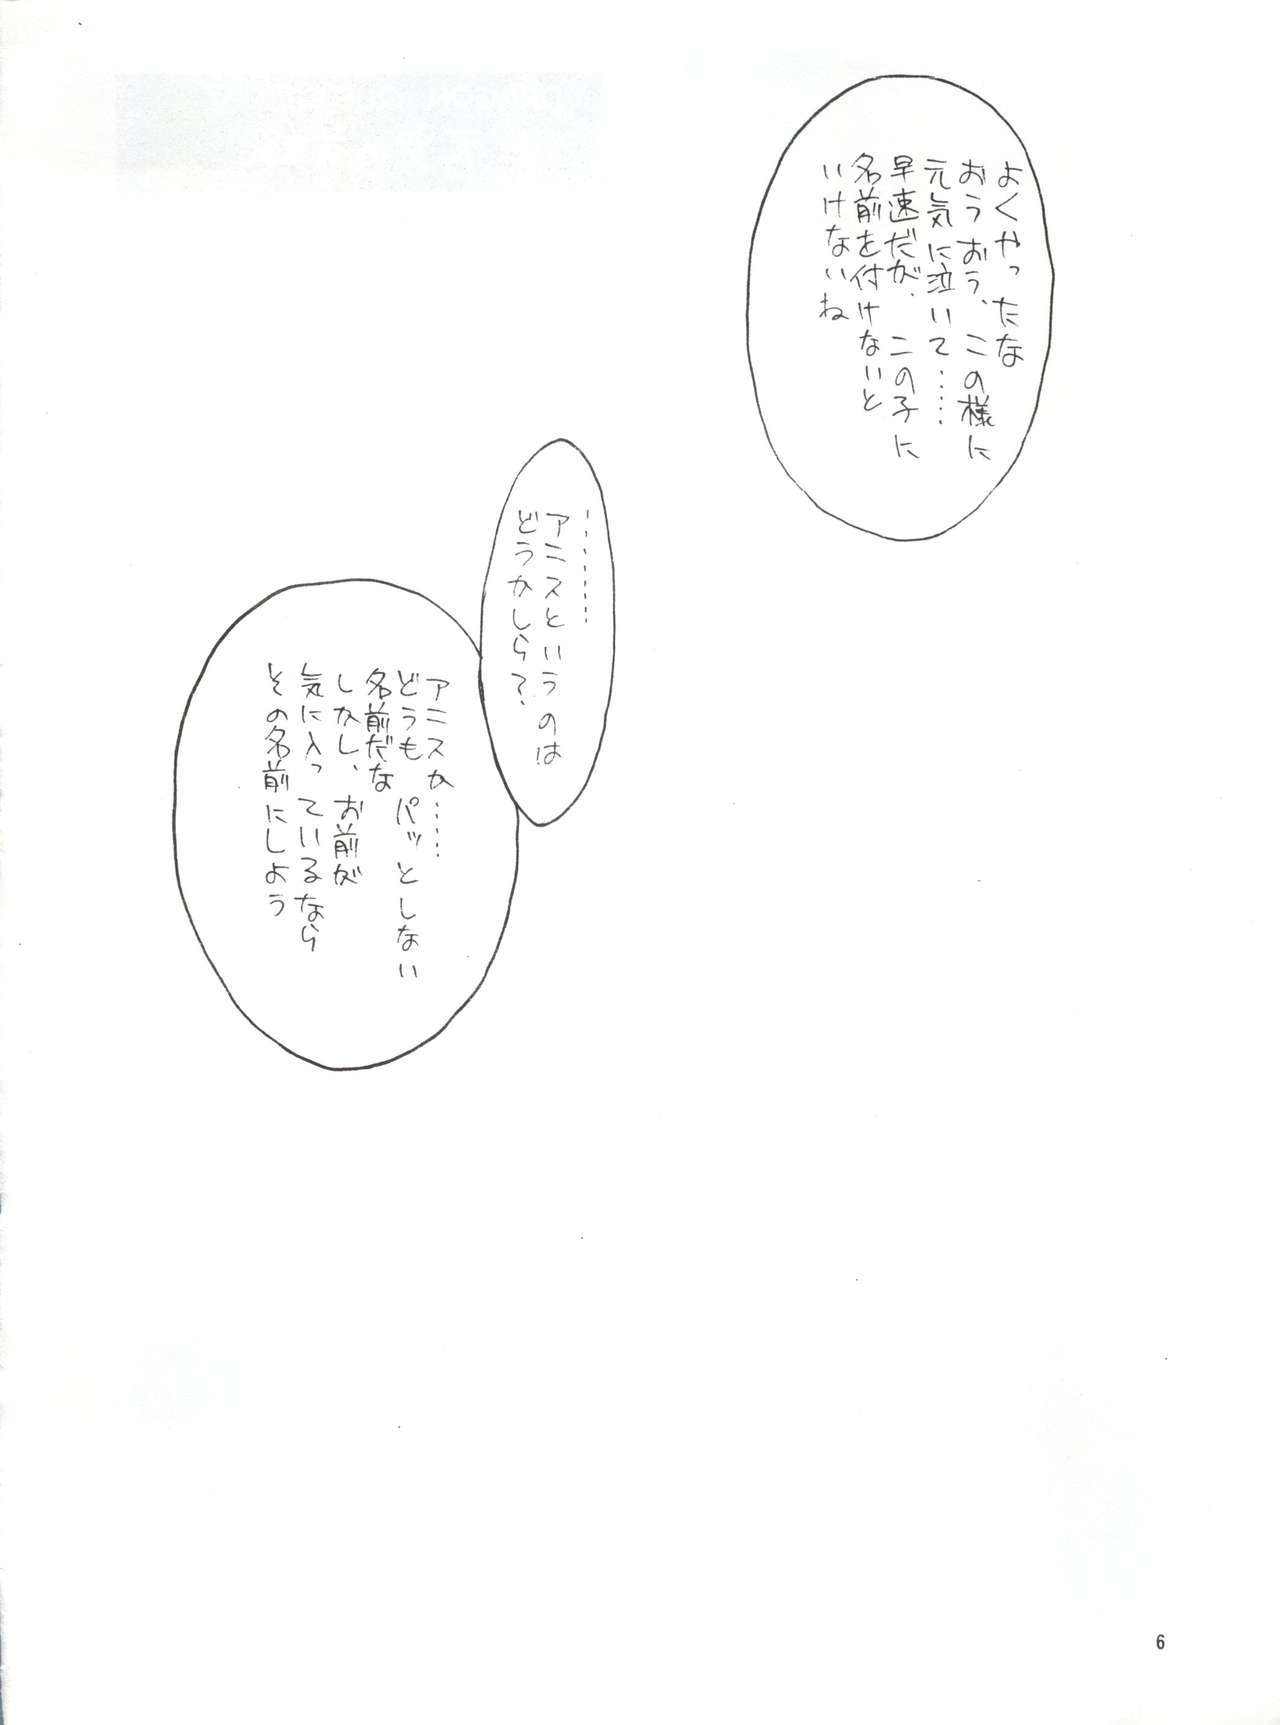 よくやったな
おうおう、この様に
元気に泣いて……
早速だが、この子に
名前を付けないと
いけないね
…………
アニスというのは
どうかしら？
アニスか……
どうもパッとしない
名前だな
しかし、お前が
気に入っているなら
その名前にしよう
6